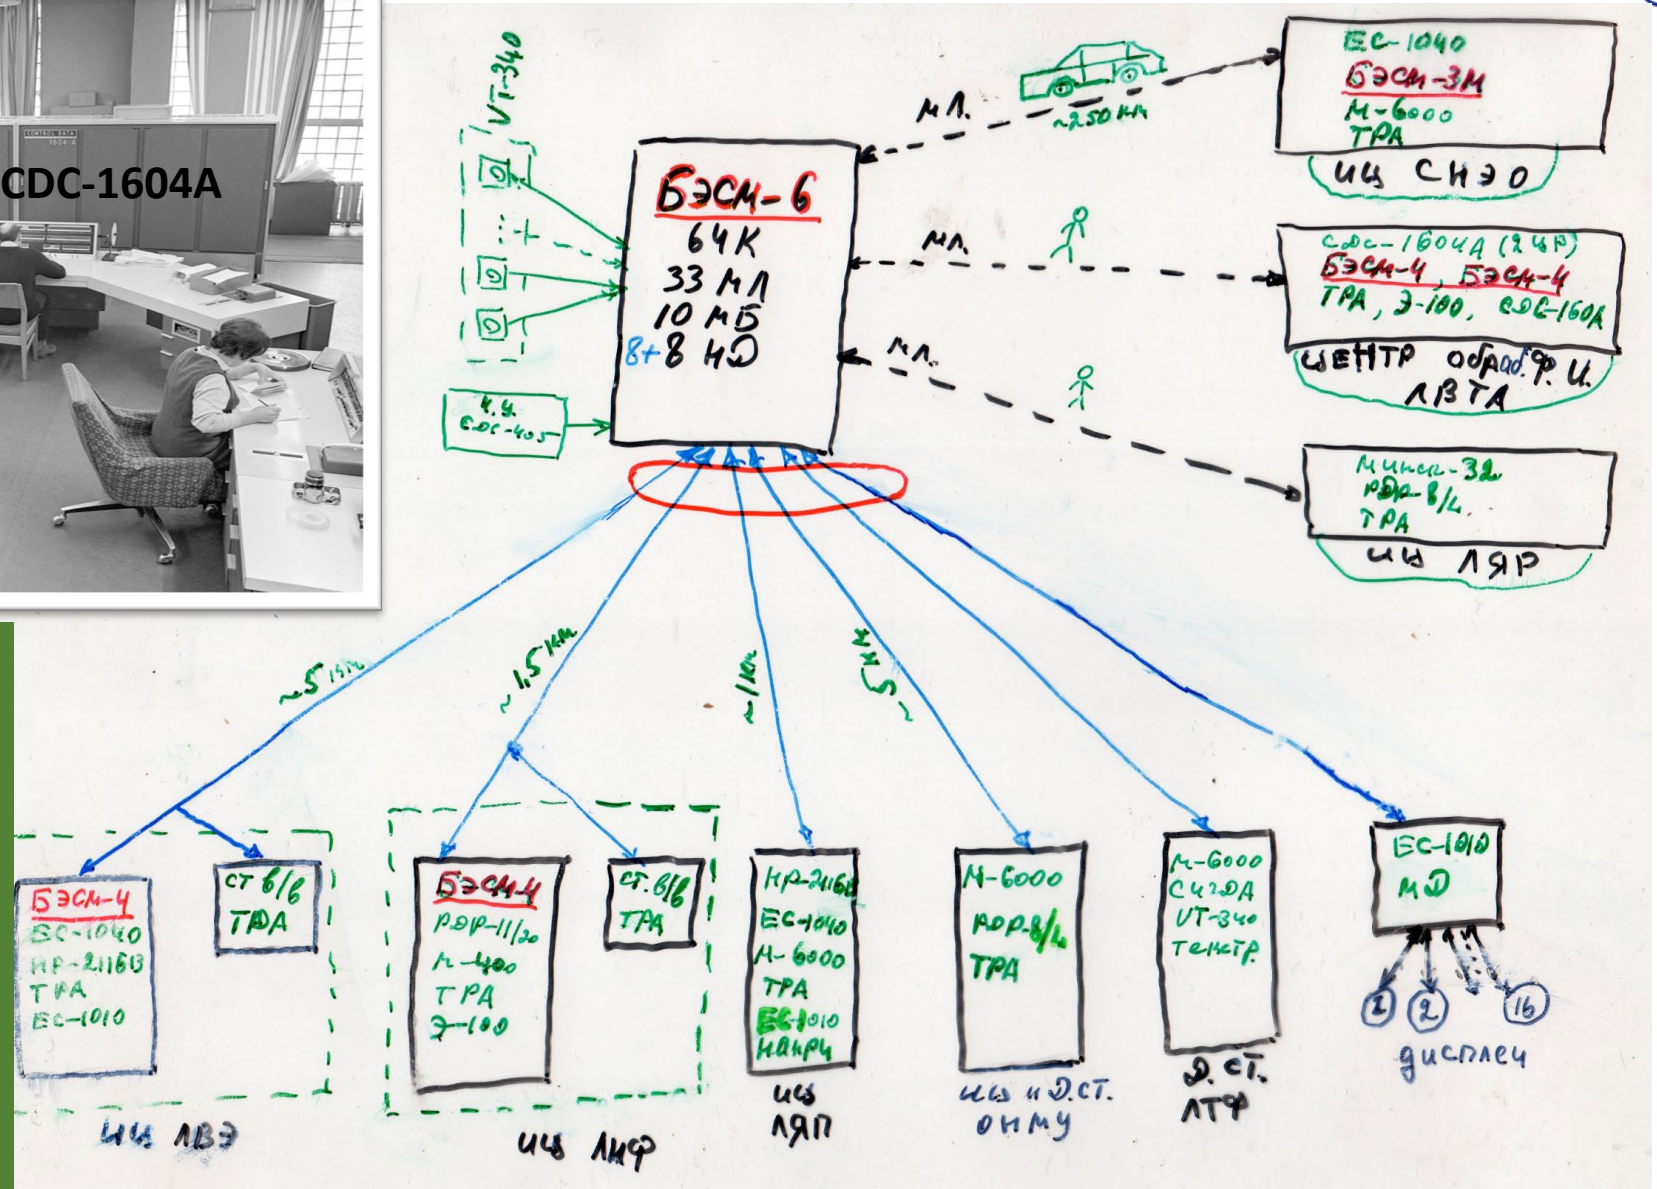 CONTROL DATA
1604-A
CDC-1604A
VT-340
БЭСМ-6
64К
33 МЛ
10 МБ
8+8 МД
CDC-405
МЛ.
~250 км
ЕС-1040
БЭСМ-3М
М-6000
ТРА
ИЦ СНЭО
МЛ.
CDC-1604A (2 ЦП)
БЭСМ-4, БЭСМ-4
ТРА, Э-100, CDC-160A
ЦЕНТР обраб. Ф. И.
ЛВТА
МЛ.
Минск-32
PDP-8/L
ТРА
ИЦ ЛЯР
~5 км
~1,5 км
~1 км
~5 км
БЭСМ-4
ЕС-1040
HP-2116B
ТРА
ЕС-1010
СТ в/в
ТРА
ИЦ ЛВЭ
БЭСМ-4
PDP-11/20
М-400
ТРА
Э-100
СТ. в/в
ТРА
ИЦ ЛНФ
HP-2116B
ЕС-1040
М-6000
ТРА
ЕС-1010
ИЦ
ЛЯП
М-6000
PDP-8/L
ТРА
ИЦ и Д.СТ.
ОНМУ
М-6000
СИГДА
VT-340
Тектр.
Д. СТ.
ЛТФ
ЕС-1010
МД
1
2
16
дисплеи